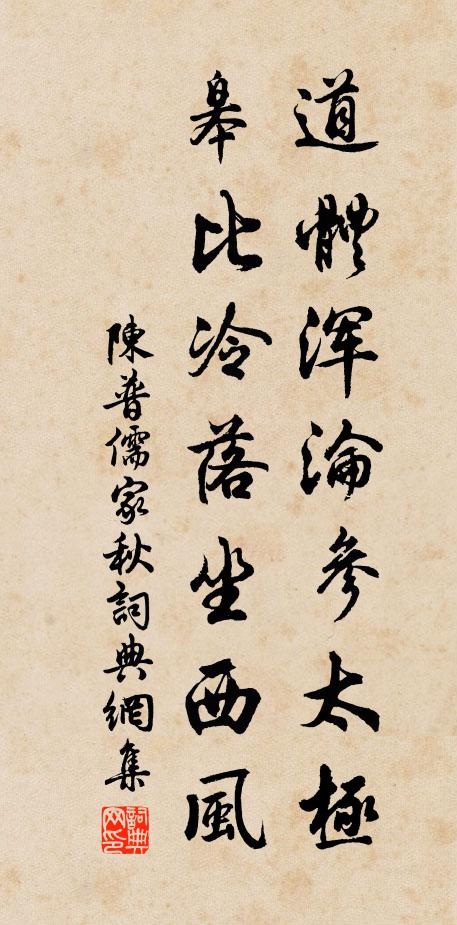 道體渾淪參太極
皋比冷落坐西風
陳普儒家秋詞典網集
詞典網印